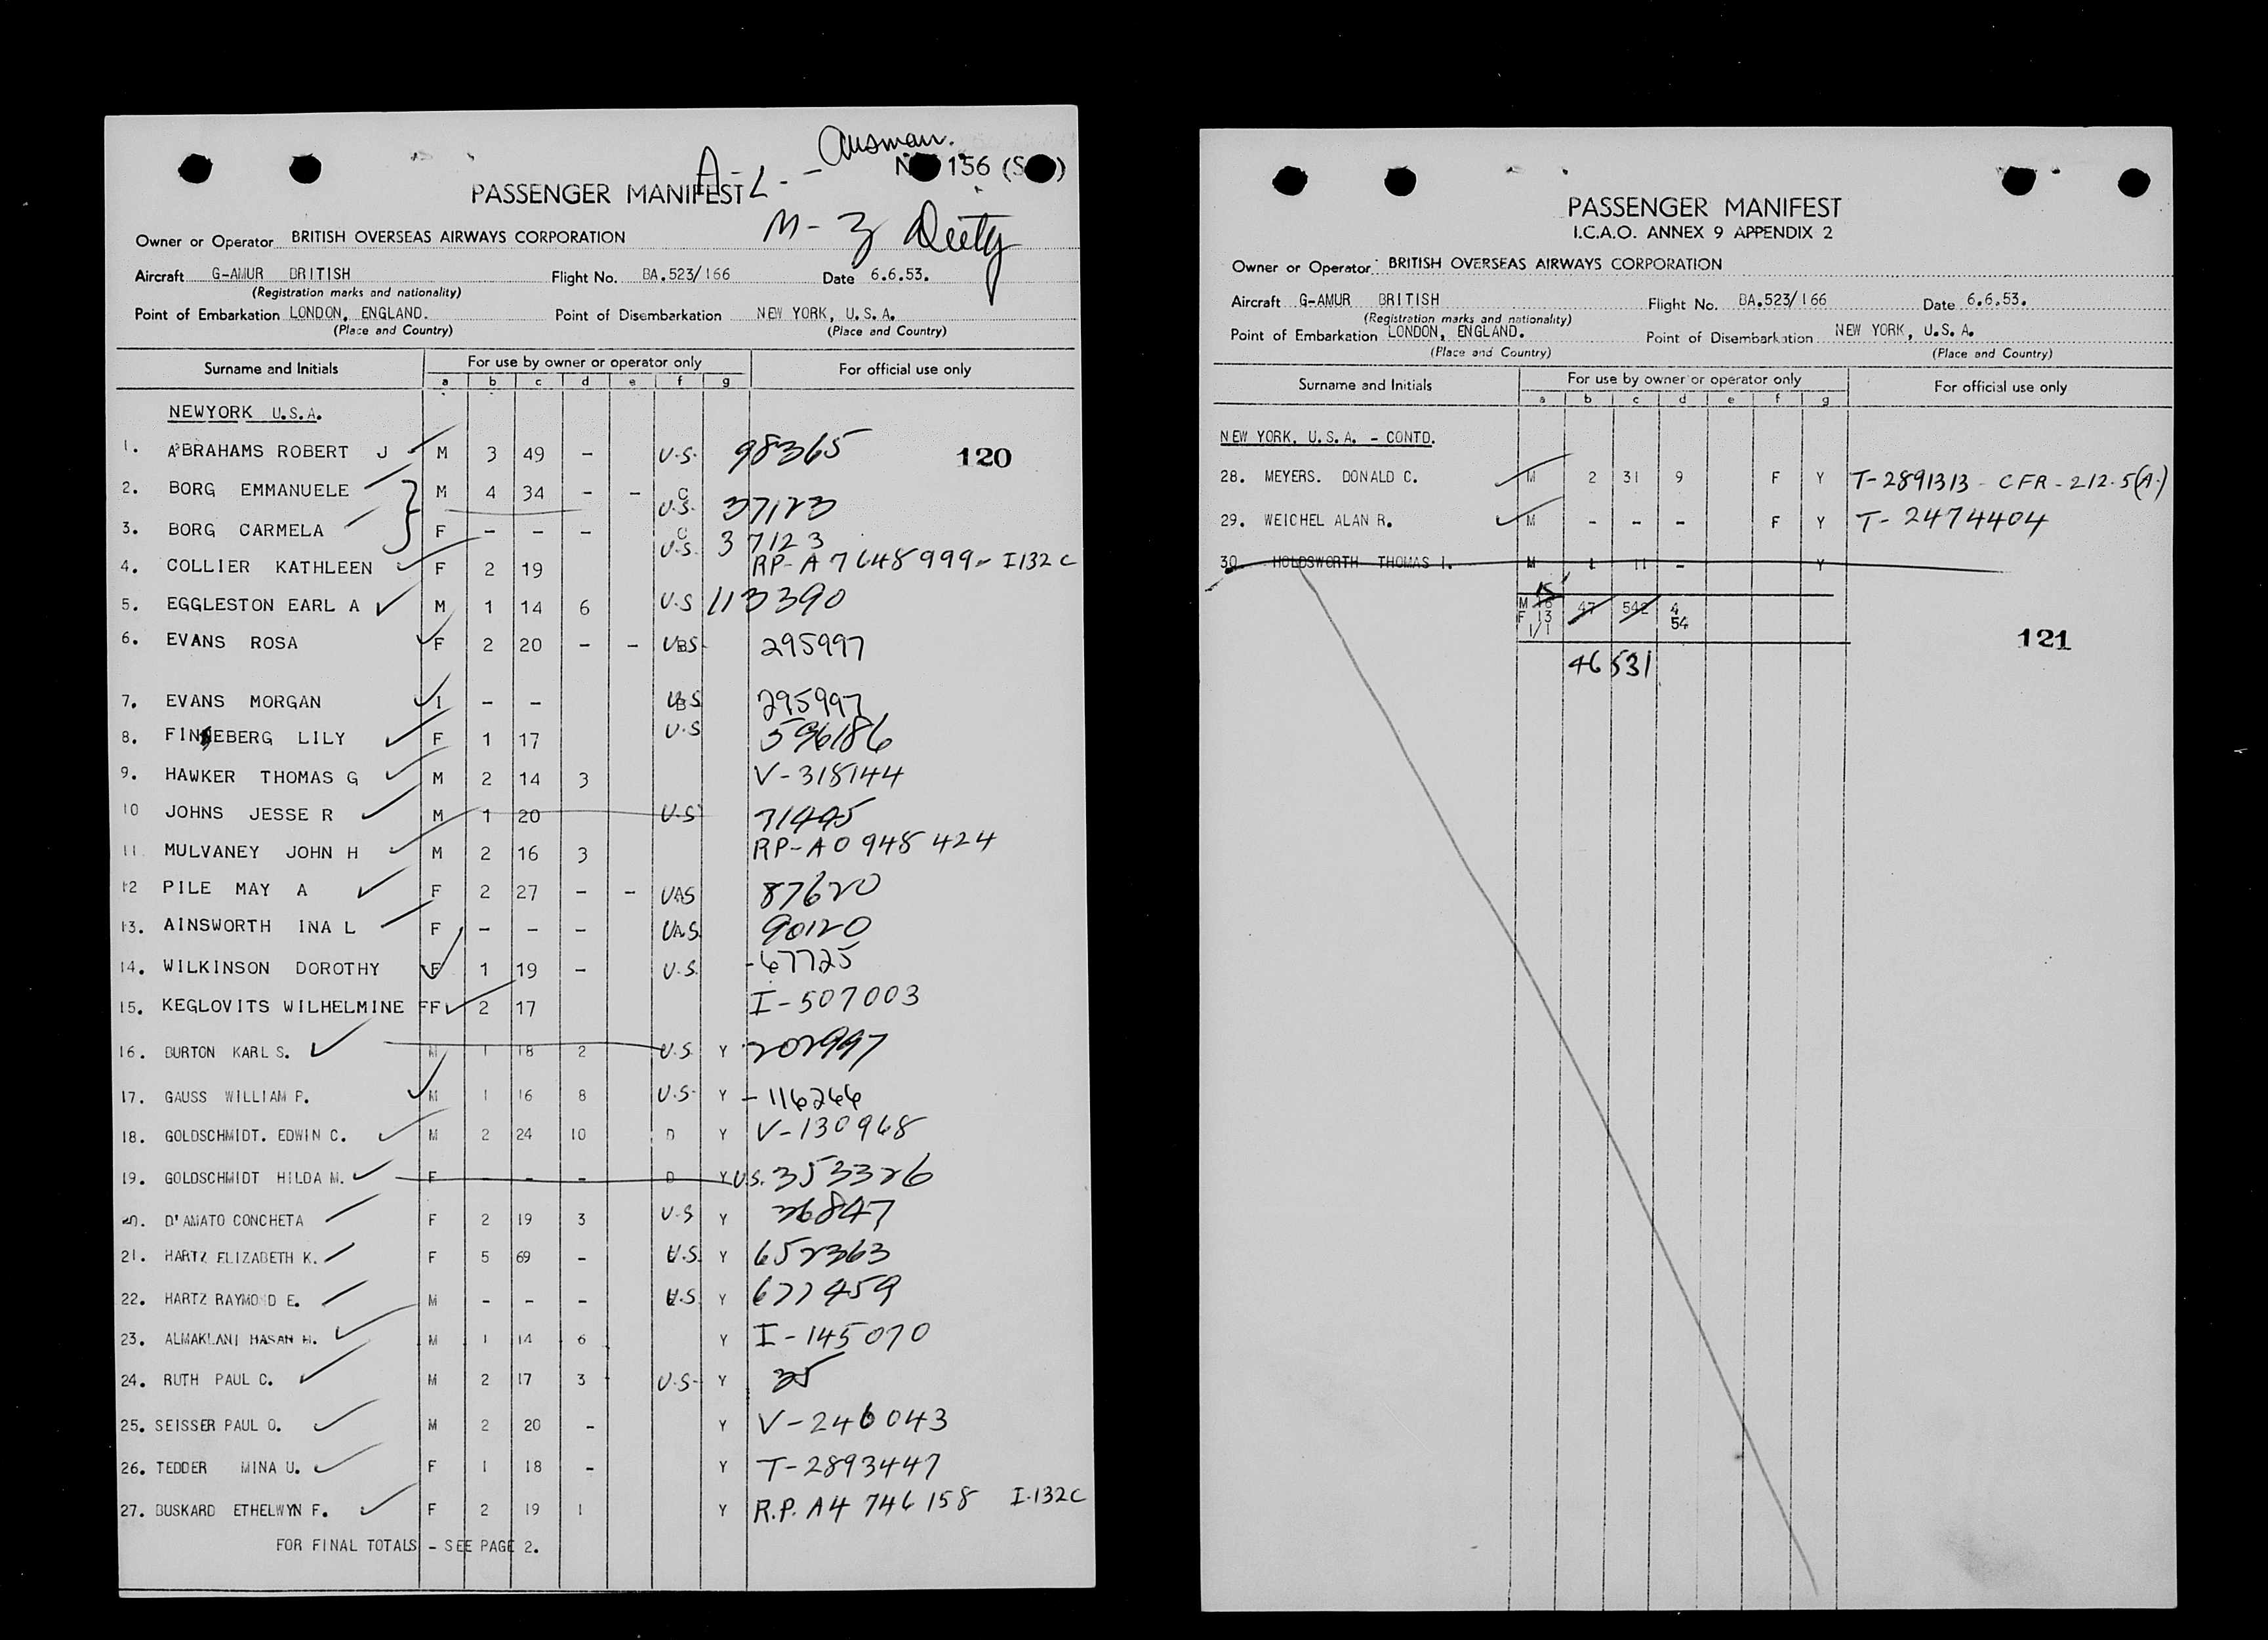 Ausman.
A - L - -
No 156 (S )
PASSENGER MANIFEST
M - Z Duty
Owner or Operator BRITISH OVERSEAS AIRWAYS CORPORATION
Aircraft G-AMUR BRITISH Flight No. BA.523/166 Date 6.6.53.
(Registration marks and nationality)
Point of Embarkation LONDON, ENGLAND. Point of Disembarkation NEW YORK, U.S.A.
(Place and Country) (Place and Country)
Surname and Initials For use by owner or operator only For official use only
a b c d e f g
NEWYORK U.S.A.
1. ABRAHAMS ROBERT J M 3 49 - U.S. 98365 120
2. BORG EMMANUELE M 4 34 - - C U.S. 37123
3. BORG CARMELA F - - - C U.S. 37123
4. COLLIER KATHLEEN F 2 19 RP-A7648999- I132C
5. EGGLESTON EARL A M 1 14 6 U.S 113390
6. EVANS ROSA F 2 20 - - U.S. 295997
7. EVANS MORGAN I - - U.S 295997
8. FINEBERG LILY F 1 17 U.S 596186
9. HAWKER THOMAS G M 2 14 3 V-318144
10 JOHNS JESSE R M 1 20 U.S 71445
11. MULVANEY JOHN H M 2 16 3 RP-A0948424
12 PILE MAY A F 2 27 - - U.S 87620
13. AINSWORTH INA L F - - - U.S. 90120
14. WILKINSON DOROTHY F 1 19 - U.S. -67725
15. KEGLOVITS WILHELMINE FF 2 17 I-507003
16. BURTON KARL S. M 1 18 2 U.S. Y 202997
17. GAUSS WILLIAM P. M 1 16 8 U.S- Y - 116266
18. GOLDSCHMIDT. EDWIN C. M 2 24 10 D Y V-130968
19. GOLDSCHMIDT HILDA M. F - - - D Y U.S. 353326
20. D'AMATO CONCHETA F 2 19 3 U.S Y 36847
21. HARTZ ELIZABETH K. F 5 69 - U.S. Y 652363
22. HARTZ RAYMOND E. M - - - U.S Y 677459
23. ALMAKLANI HASAN H. M 1 14 6 Y I-145070
24. RUTH PAUL C. M 2 17 3 U.S- Y 35
25. SEISSER PAUL O. M 2 20 - Y V-246043
26. TEDDER MINA U. F 1 18 - Y T-2893447
27. BUSKARD ETHELWYN F. F 2 19 1 Y R.P. A4 746158 I-132C
FOR FINAL TOTALS - SEE PAGE 2.
PASSENGER MANIFEST
I.C.A.O. ANNEX 9 APPENDIX 2
Owner or Operator BRITISH OVERSEAS AIRWAYS CORPORATION
Aircraft G-AMUR BRITISH Flight No. BA.523/166 Date 6.6.53.
(Registration marks and nationality)
Point of Embarkation LONDON, ENGLAND. Point of Disembarkation NEW YORK, U.S.A.
(Place and Country) (Place and Country)
Surname and Initials For use by owner or operator only For official use only
a b c d e f g
NEW YORK, U.S.A. - CONTD.
28. MEYERS. DONALD C. M 2 31 9 F Y T-2891313 - CFR-212.5(A.)
29. WEICHEL ALAN R. M - - - F Y T-2474404
30. HOLDSWORTH THOMAS I. M 1 11 - Y
15
M 16 47 542 4
F 13 54
1/1
46 531
121